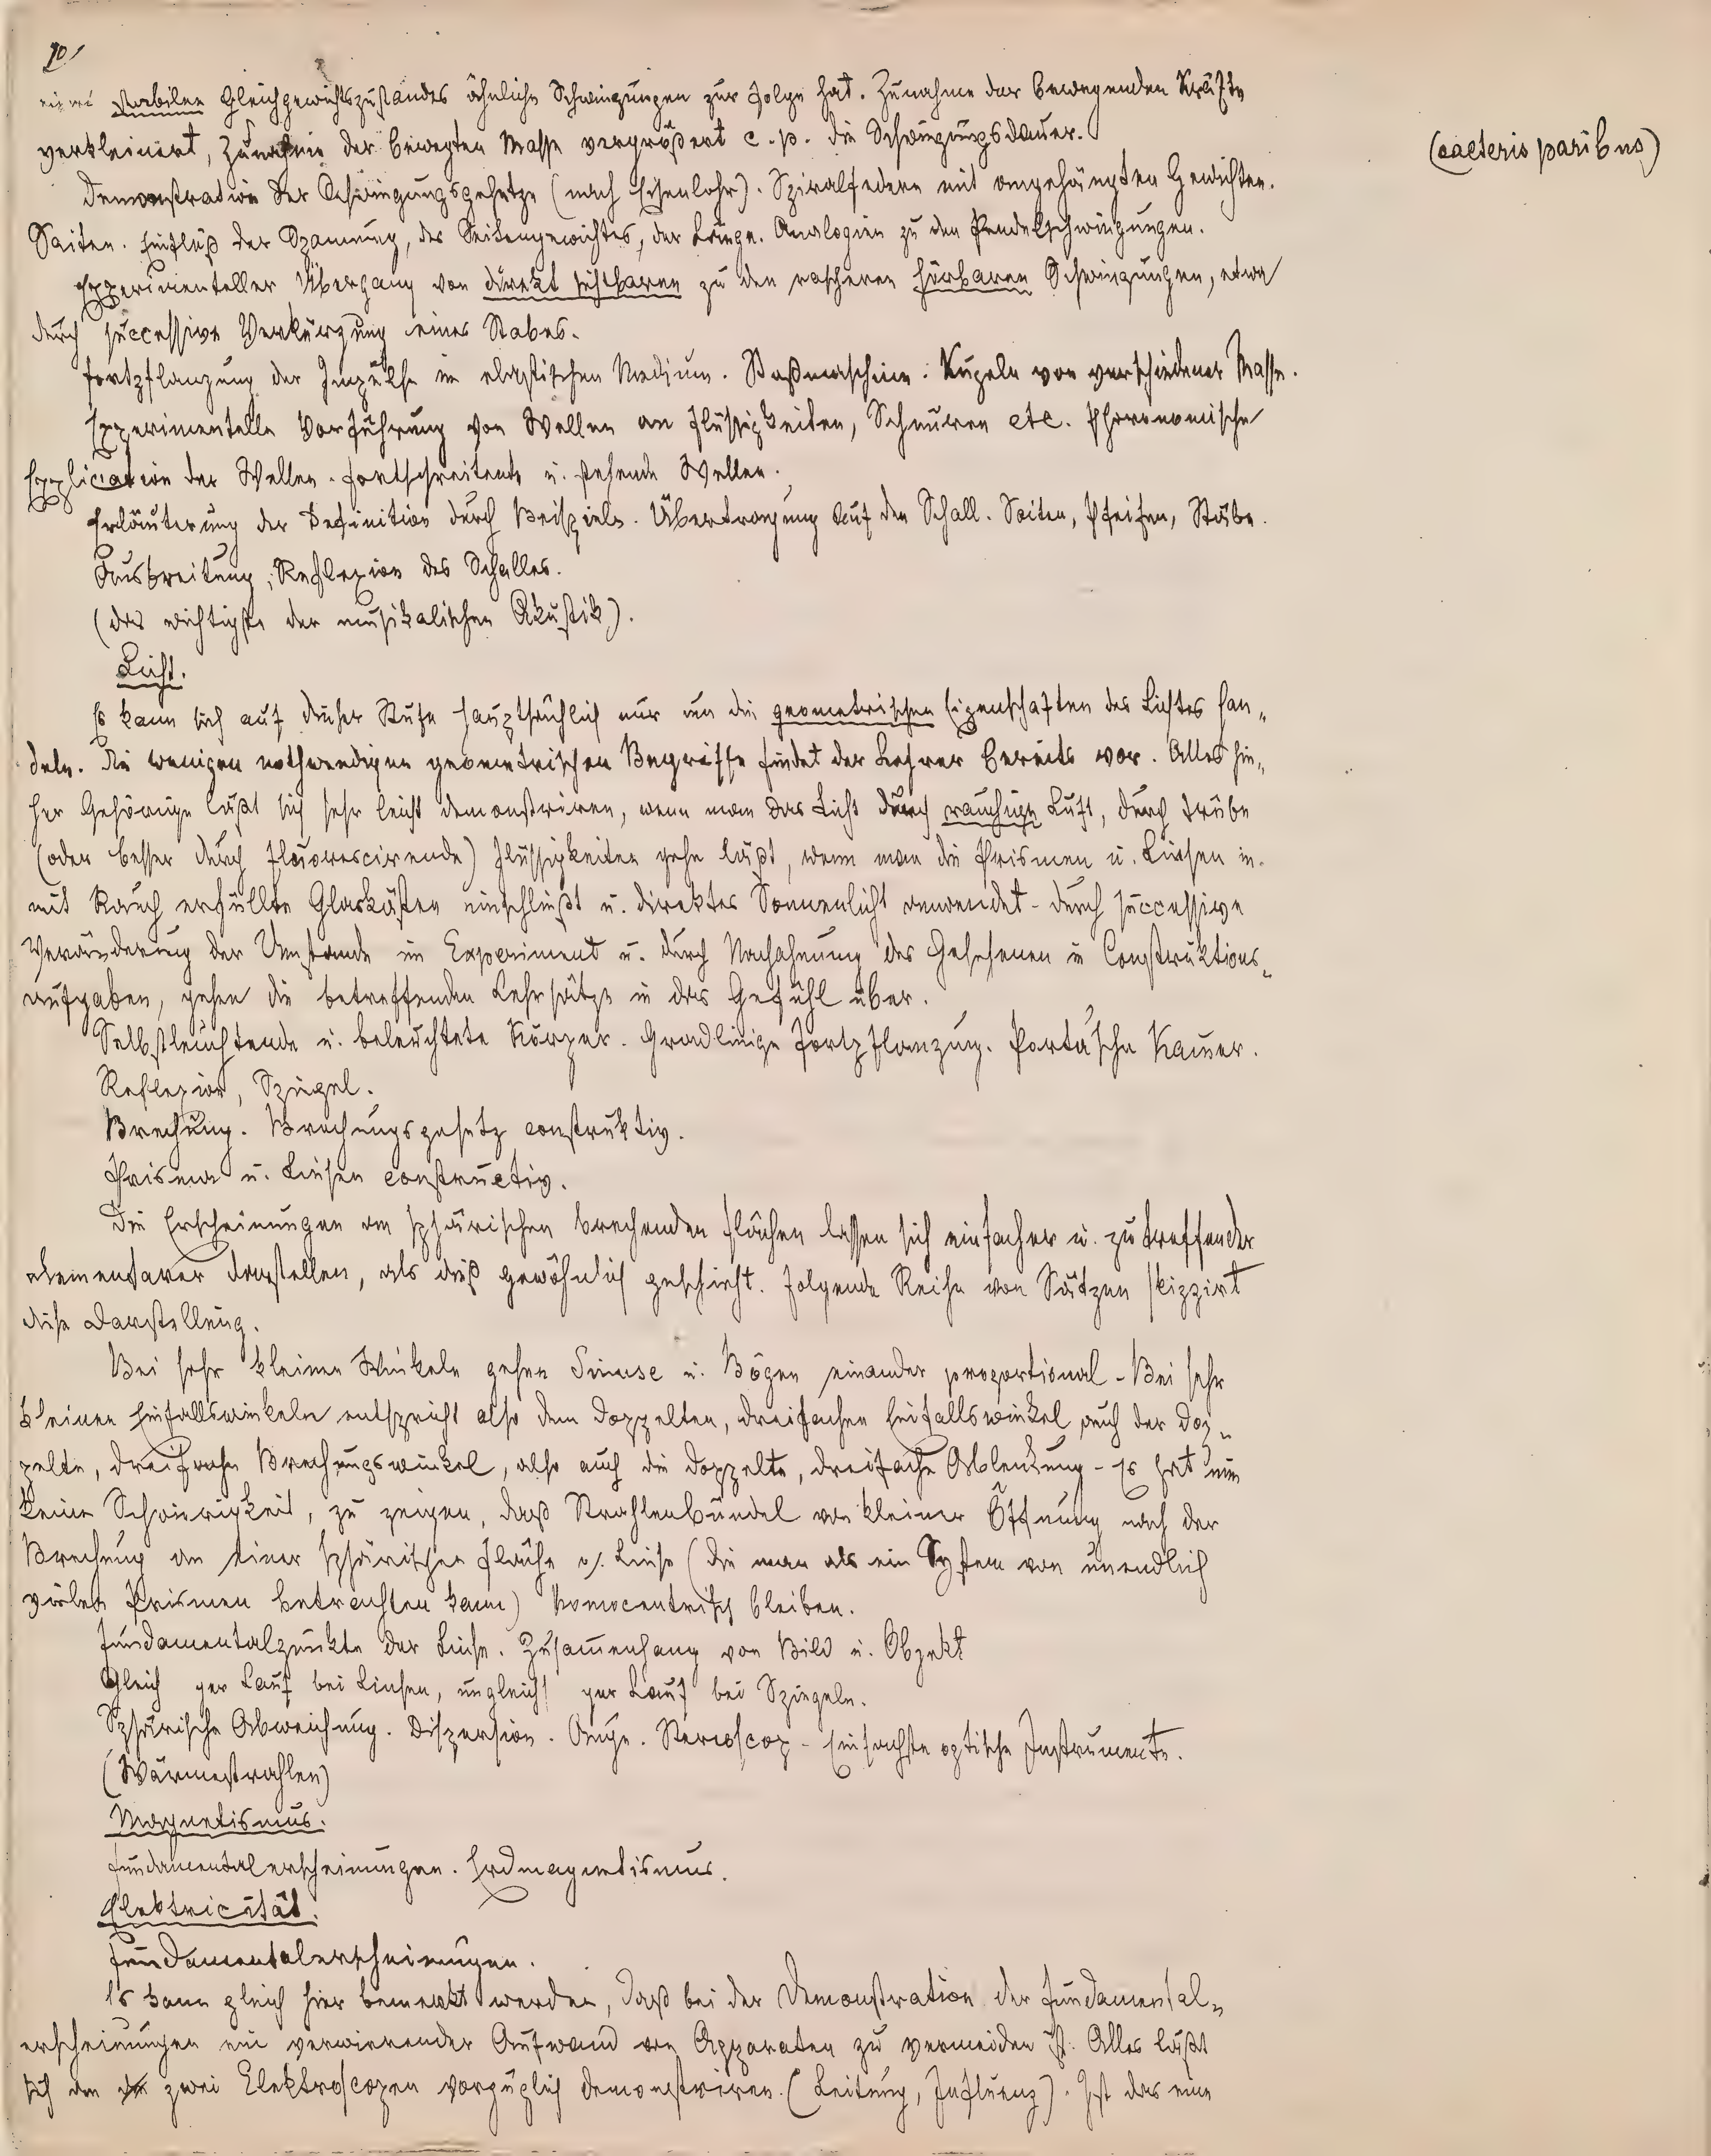 10/
eines stabilen Gleichgewichtszustandes ähnliche Schwingungen zur Folge hat. Zunahme der bewegenden Kräfte
verkleinert, Zunahme der bewegten Masse vergrößert c. p. die Schwingungsdauer.
(caeteris paribus)
Demonstration der Schwingungsgesetze (nach Eisenlohr). Spiralfedern mit angehängten Gewichten.
Saiten. Einfluß der Spannung, des Saitengewichtes, der Länge. Analogien zu den Pendelschwingungen.
Experimenteller Übergang von direkt sichtbaren zu den rascheren hörbaren Schwingungen, etwa
durch successive Verkürzung eines Stabes.
Fortpflanzung der Impulse im elastischen Medium. Stoßmaschine: Kugeln von verschiedener Masse.
Experimentelle Vorführung von Wellen an Flüssigkeiten, Schnüren etc. Phoronomische
Explication der Wellen. Fortschreitende u. stehende Wellen.
Erläuterung der Definition durch Beispiele. Übertragung auf den Schall. Saiten, Pfeifen, Stäbe.
Ausbreitung, Reflexion des Schalles.
(das wichtigste der musikalischen Akustik).
Licht.
Es kann sich auf dieser Stufe hauptsächlich nur um die geometrischen Eigenschaften des Lichtes han„
deln. Die wenigen nothwendigen geometrischen Begriffe findet der Lehrer bereits vor. Alles hie„
her Gehörige läßt sich sehr leicht demonstriren, wenn man das Licht durch rauchige Luft, durch trübe
(oder besser durch fluorescirende) Flüssigkeiten gehe läßt, wenn man die Prismen u. Linsen in
mit Rauch erfüllte Glaskästen einschließt u. direktes Sonnenlicht anwendet - durch successive
Veränderung der Umstande im Experiment u. durch Nachahmung des Gesehenen in Construktions„
aufgaben, gehen die betreffenden Lehrsätze in das Gefühl über.
Selbstleuchtende u. beleuchtete Körper. Gradlinige Fortpflanzung. Porta'sche Kamer.
Reflexion, Spiegel.
Brechung. Brechungsgesetz construktiv.
Prisma u. Linsen constructiv.
Die Erscheinungen an sphärischen brechenden Flächen lassen sich einfacher u. zutreffender
elementarer darstellen, als dieß gewöhnlich geschieht. Folgende Reihe von Sätzen skizzirt
diese Darstellung.
Bei sehr kleinen Winkeln gehen Sinuse u. Bögen einander proportional - Bei sehr
kleinen Einfallswinkeln entspricht also dem doppelten, dreifachen Einfallswinkel auch der dop„
pelte, dreifache Brechungswinkel, also auch die doppelte, dreifache Ablenkung - Es hat nun
keine Schwierigkeit, zu zeigen, daß Strahlenbündel von kleiner Öffnung nach der
Brechung an einer sphärischen Fläche o. Linse (die man als ein System von unendlich
vielen Prismen betrachten kann) homocentrisch bleiben.
Fundamentalpunkte der Linse. Zusam̄enhang von Bild u. Objekt
Gleich ger Lauf bei Linsen, ungleich ger Lauf bei Spiegeln.
Sphärische Abweichung. Dispersion. Auge. Stereoscop - Einfachste optische Instrumente.
(Wärmestrahlen)
Magnetismus.
Fundamentalerscheinungen. Erdmagnetismus.
Elektricität.
Fundamentalerscheinungen.
Es kann gleich hier bemerkt werden, daß bei der Demonstration der Fundamental„
erscheinungen ein verwirrender Aufwand von Apparaten zu vermeiden ist. Alles läßt
sich an zwei Elektroscopen vorzüglich demonstriren. (Leitung, Influenz). Ist das eine